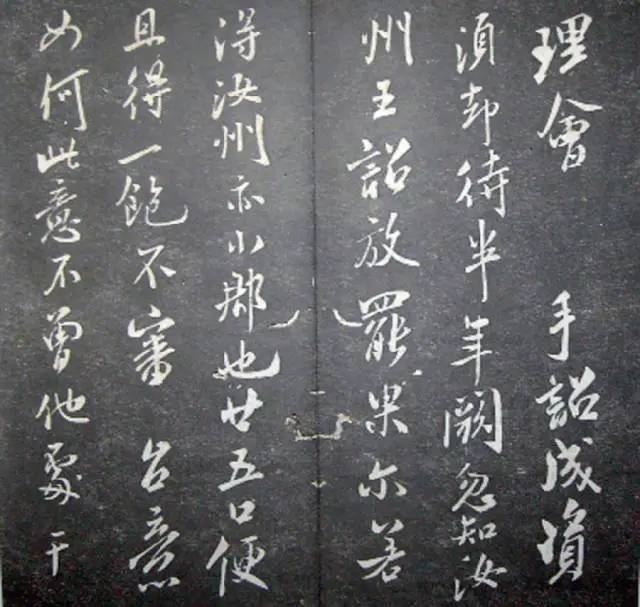 理會 手詔成資
須却待半年闕忽知汝
州王詔放罷果尒若
得汝州亦小郡也廿五口便
且得一飽不審 台意
如何此意不曾他處干